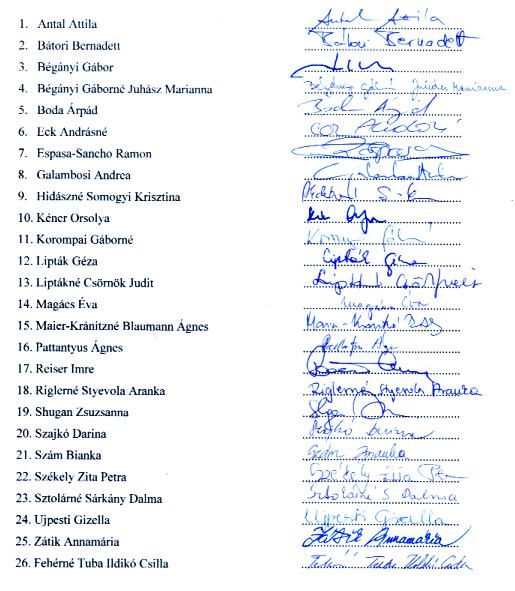 1. Antal Attila Antal Attila
2. Bátori Bernadett Bátori Bernadett
3. Bégányi Gábor
4. Bégányi Gáborné Juhász Marianna Bégányi Gáborné Juhász Marianna
5. Boda Árpád Boda Árpád
6. Eck Andrásné
7. Espasa-Sancho Ramon
8. Galambosi Andrea
9. Hidászné Somogyi Krisztina
10. Kéner Orsolya
11. Korompai Gáborné
12. Lipták Géza Lipták Géza
13. Liptákné Csörnök Judit
14. Magács Éva Magács Éva
15. Maier-Kránitzné Blaumann Ágnes
16. Pattantyus Ágnes
17. Reiser Imre
18. Riglerné Styevola Aranka Riglerné Styevola Aranka
19. Shugan Zsuzsanna
20. Szajkó Darina Szajkó Darina
21. Szám Bianka Szám Bianka
22. Székely Zita Petra Székely Zita
23. Sztolárné Sárkány Dalma Sztolárné S Dalma
24. Ujpesti Gizella Ujpesti Gizella
25. Zátik Annamária Zátik Annamária
26. Fehérné Tuba Ildikó Csilla